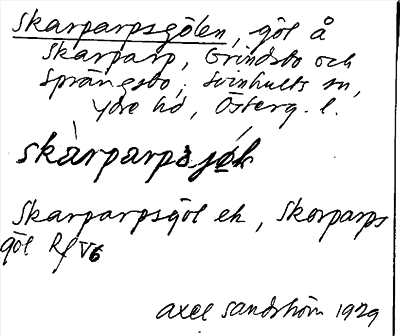 Skarparpsgölen, göl å
Skarparp, Grindsbo och
Sprängsbo, Svinhults sn,
Ydre hd, Österg. l.
skàrparpsjøḷn
Skarparpsgöl ek, Skorparps
göl Rf V6
Axel Sandström 1929